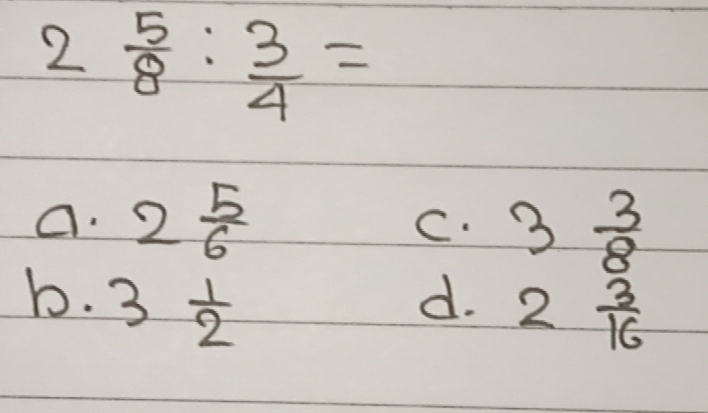 2 5/8 : 3/4 =
a. 2 5/6 c. 3 3/8
b. 3 1/2 d. 2 3/16